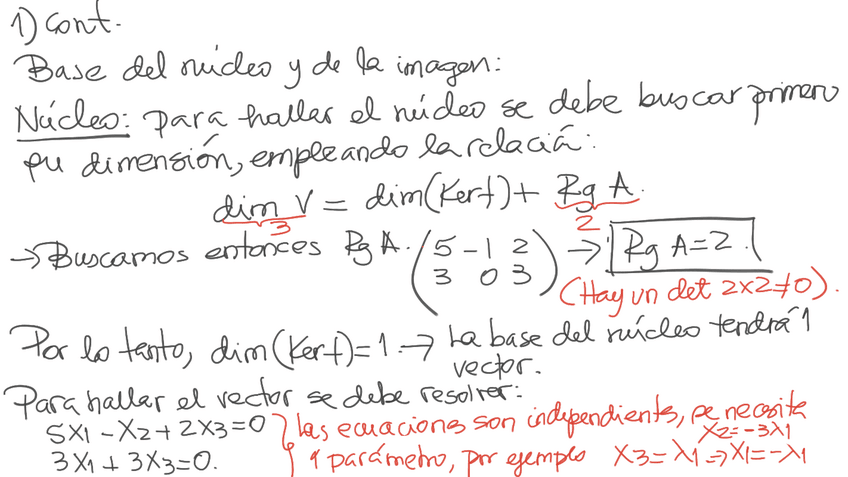 1) Cont.
Base del núcleo y de la imagen:
Núcleo: para hallar el núcleo se debe buscar primero
su dimensión, empleando la relación:
dim V = dim(Kerf) + Rg A.
3 2
→ Buscamos entonces Rg A. (5 -1 2 → Rg A=2.
3 0 3) (Hay un det 2x2≠0).
Por lo tanto, dim(Kerf)=1. → La base del núcleo tendrá 1
vector.
Para hallar el vector se debe resolver:
5x1 - x2 + 2x3 = 0 } Las ecuaciones son independientes, se necesita
x2=-3λ1
3x1 + 3x3 = 0. 1 parámetro, por ejemplo x3=λ1 ⇒ x1=-λ1